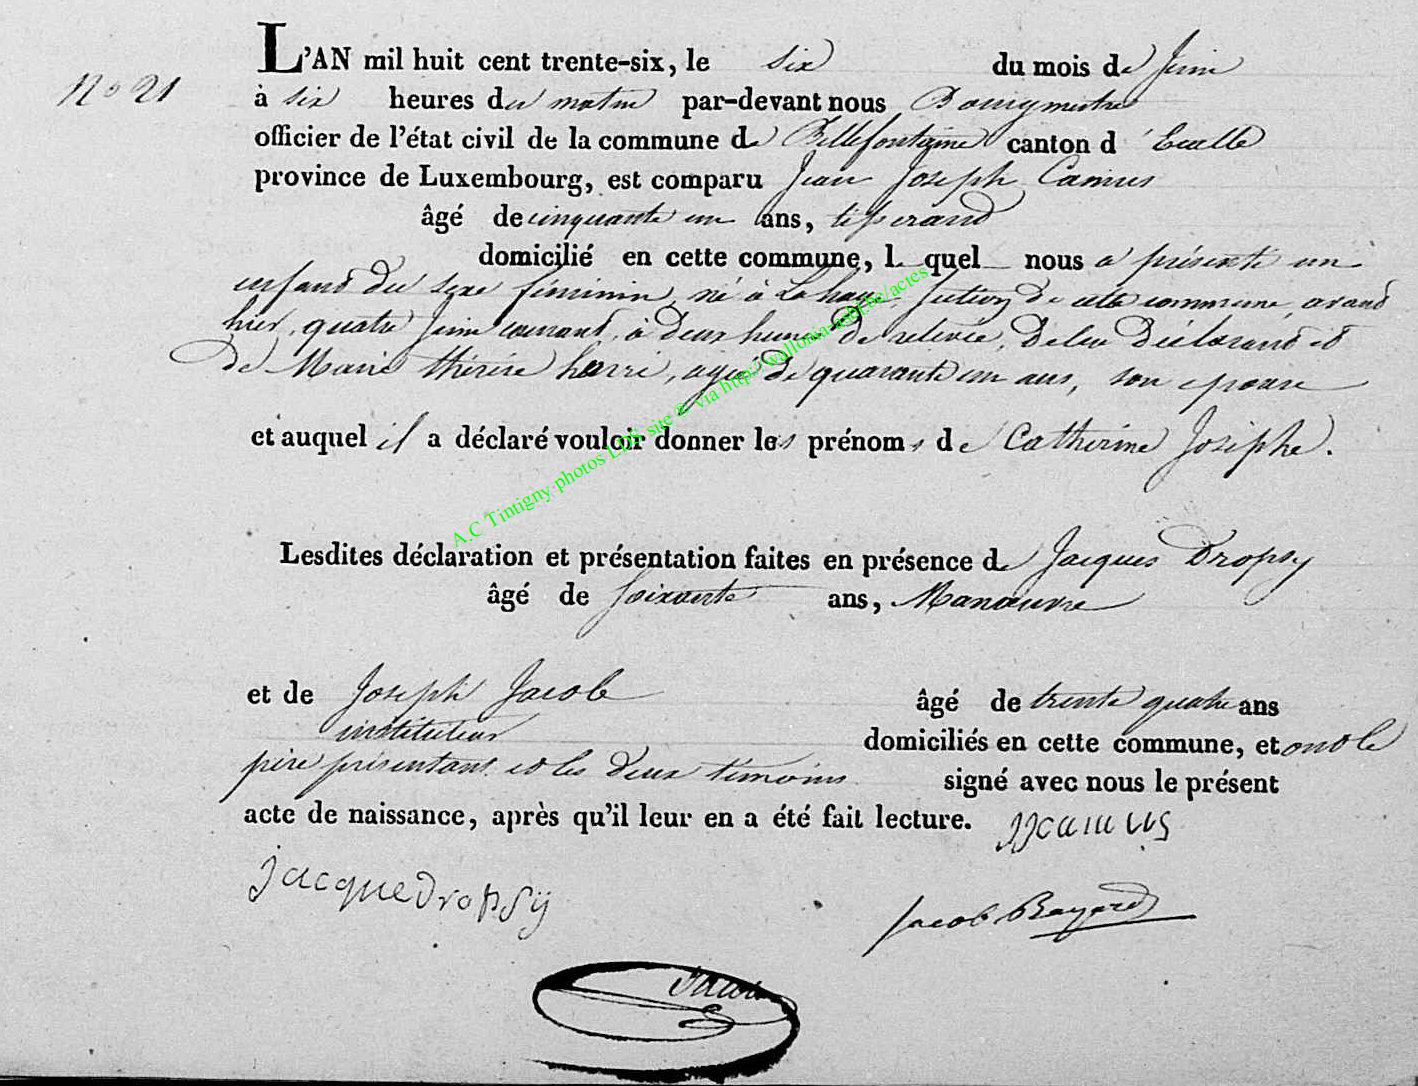 L'AN mil huit cent trente-six, le six du mois de Juin
No 21
à six heures du matin par-devant nous Bourgmestre
officier de l'état civil de la commune de Bellefontaine canton d'Etalle
province de Luxembourg, est comparu Jean Joseph Camus
âgé de cinquante un ans, tisserand
domicilié en cette commune, lequel nous a présenté un
enfant du sexe féminin, né à Lahage, section de cette commune, avant
hier, quatre Juin courant, à deux heures de relevée, de lui déclarant et
de Marie thérèse harri, agée de quarante un ans, son epouse
et auquel il a déclaré vouloir donner les prénoms de Catherine Josèphe.
A.C Tintigny photos LDS site © via http://wallonia-asbl.be/actes
Lesdites déclaration et présentation faites en présence de Jacques Dropsy
âgé de soixante ans, Manœuvre
et de Joseph Jacob âgé de trente quatre ans
instituteur domiciliés en cette commune, et ont le
père présentant et les deux témoins signé avec nous le présent
acte de naissance, après qu'il leur en a été fait lecture. JJcamus
jacque Dropsÿ
Jacob